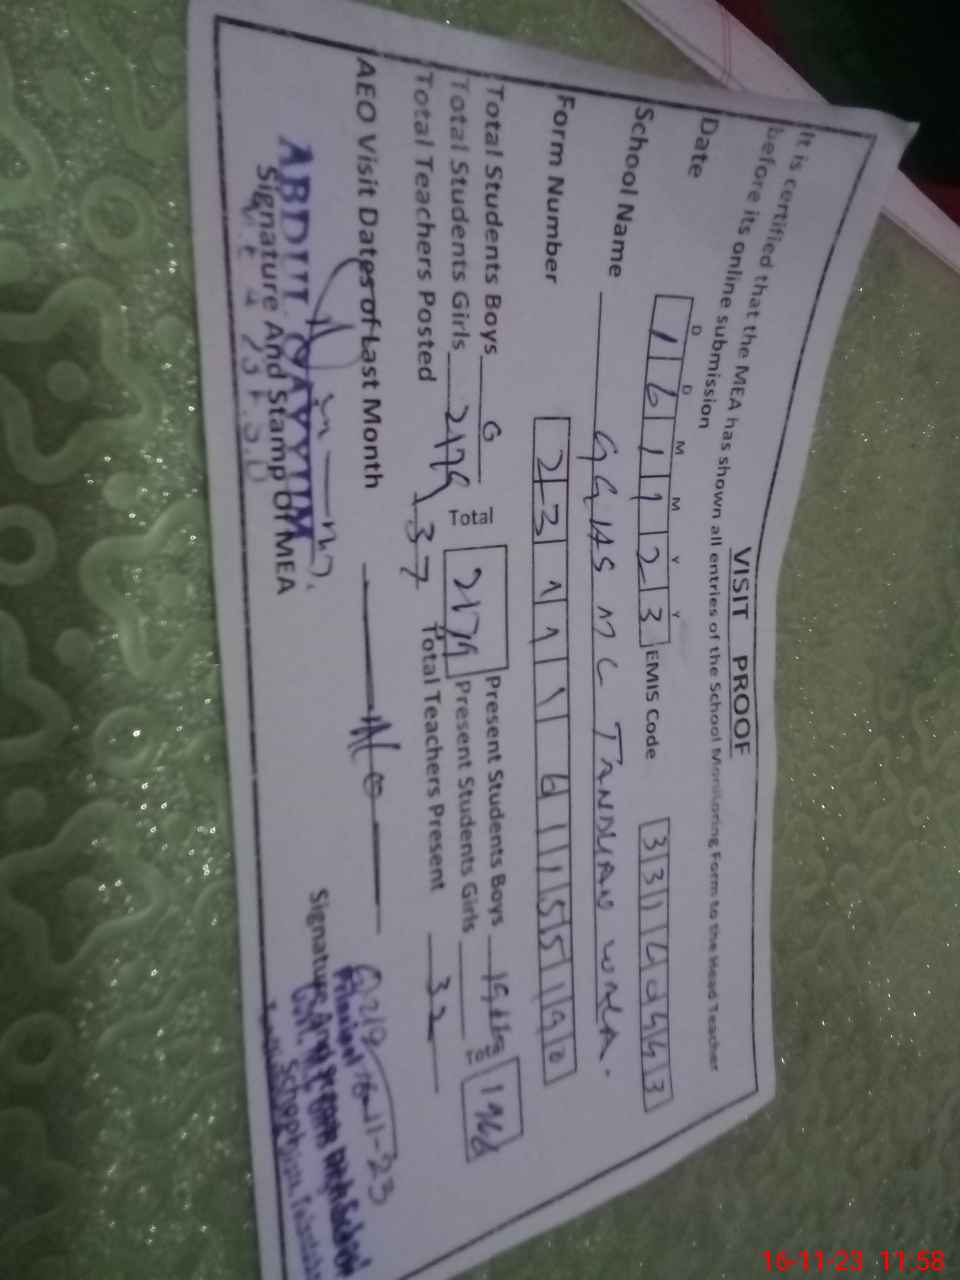 VISIT PROOF
It is certified that the MEA has shown all entries of the School Monitoring Form to the Head Teacher
before its online submission
D D M M Y Y
Date 1 6 1 1 2 3 EMIS Code 3 3 1
School Name GGHS MC TANDLIANWALA.
Form Number 2 3 1 1 1 6 1 1 5 5 1 9 0
Total Students Boys Present Students Boys
Total Students Girls 2179 Total 2179 Present Students Girls Total
Total Teachers Posted 37 Total Teachers Present 32
AEO Visit Dates of Last Month
ABDUL QAYYUM
Signature And Stamp of MEA
Signature And
Principal 16-11-23
School
16-11-23 11:58